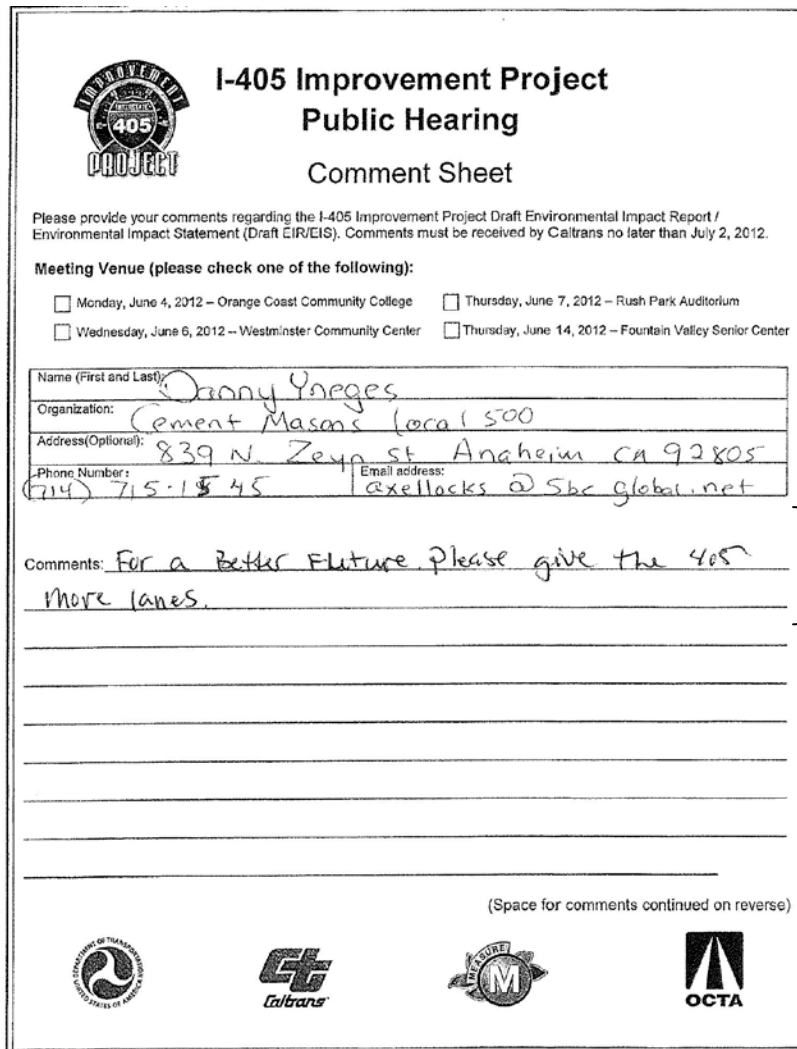 IMPROVEMENT
INTERSTATE
405
PROJECT
I-405 Improvement Project
Public Hearing
Comment Sheet
Please provide your comments regarding the I-405 Improvement Project Draft Environmental Impact Report /
Environmental Impact Statement (Draft EIR/EIS). Comments must be received by Caltrans no later than July 2, 2012.
Meeting Venue (please check one of the following):
Monday, June 4, 2012 – Orange Coast Community College
Thursday, June 7, 2012 – Rush Park Auditorium
Wednesday, June 6, 2012 – Westminster Community Center
Thursday, June 14, 2012 – Fountain Valley Senior Center
Name (First and Last): Danny Yneges
Organization: Cement Masons local 500
Address(Optional): 839 N. Zeyn st Anaheim CA 92805
Phone Number: (714) 715-1545
Email address: axellocks @ Sbc global.net
Comments: For a Better Fluture. Please give the 405
more lanes.
(Space for comments continued on reverse)
DEPARTMENT OF TRANSPORTATION
UNITED STATES OF AMERICA
Caltrans
MEASURE
M
OCTA